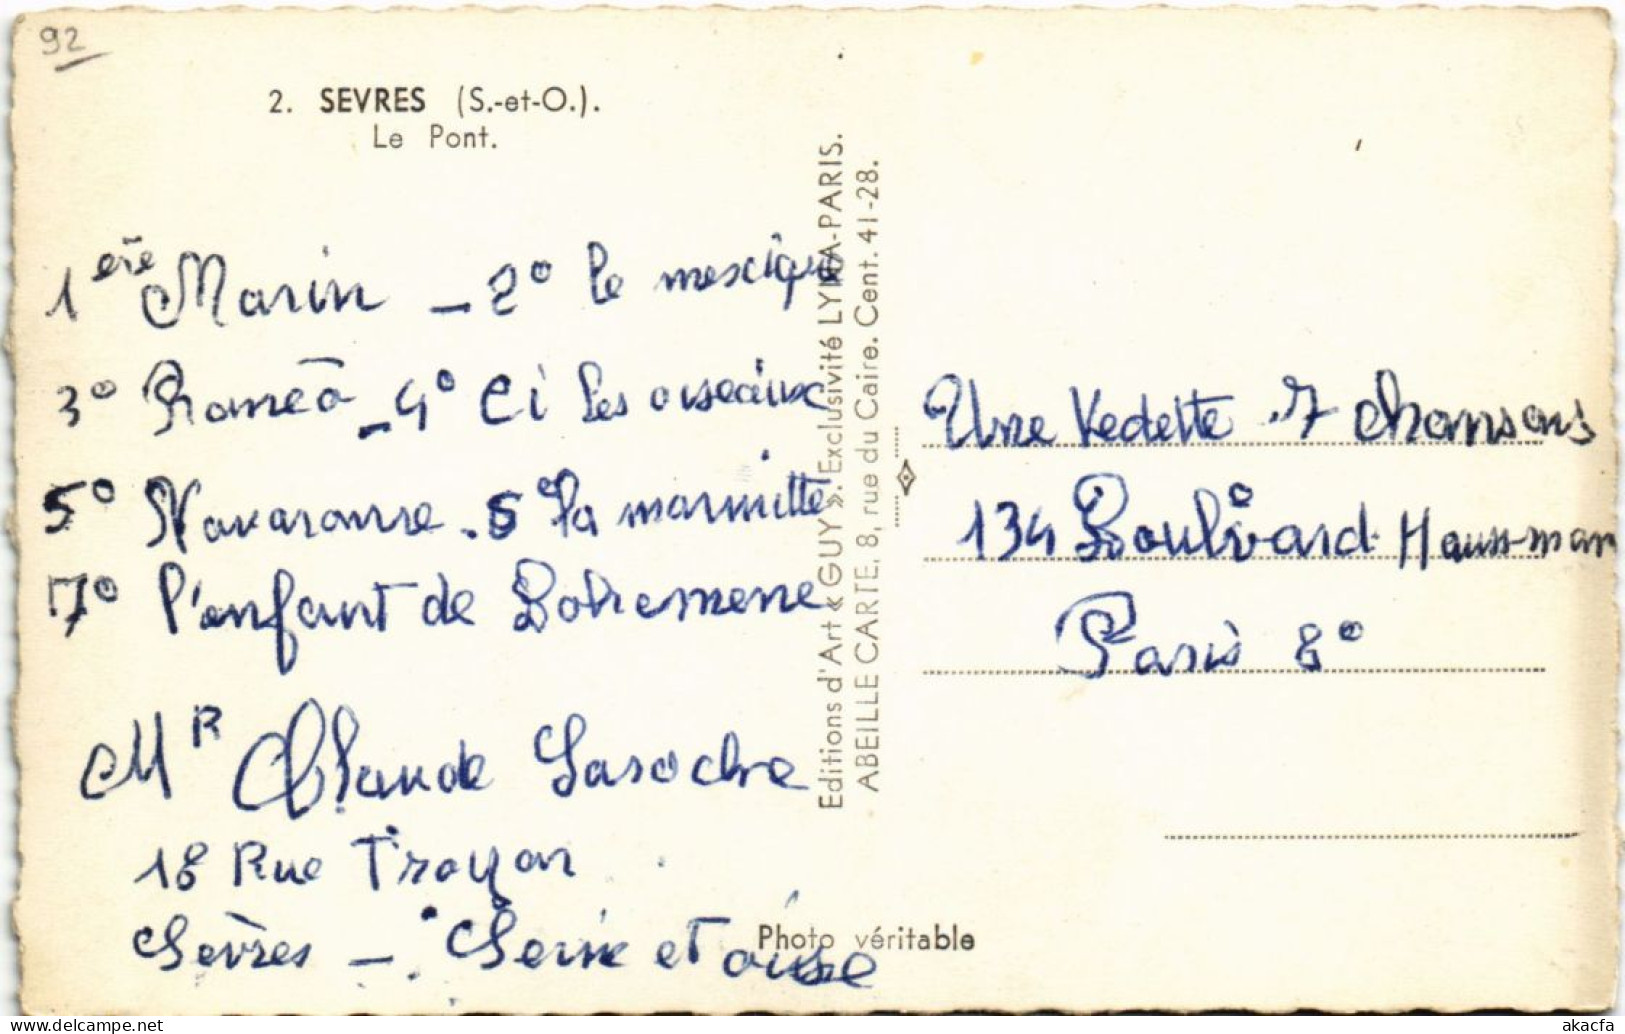 92
2. SEVRES (S.-et-O.).
Le Pont.
1ère Marin _ 2° le mexique
3° Roméo _ 4° Ci les oiseaux
5° Navaronne . 6° la marmitte
7° l'enfant de Bohemene
MR Claude Laroche
18 Rue Troyon
Sèvres _ Seine et oise
Editions d'Art « GUY ». Exclusivité LYNA-PARIS.
ABEILLE CARTE, 8, rue du Caire. Cent. 41-28.
Photo véritable
Une Vedette 7 chansons
134 Boulivard Haussman
Paris 8°
akacfa